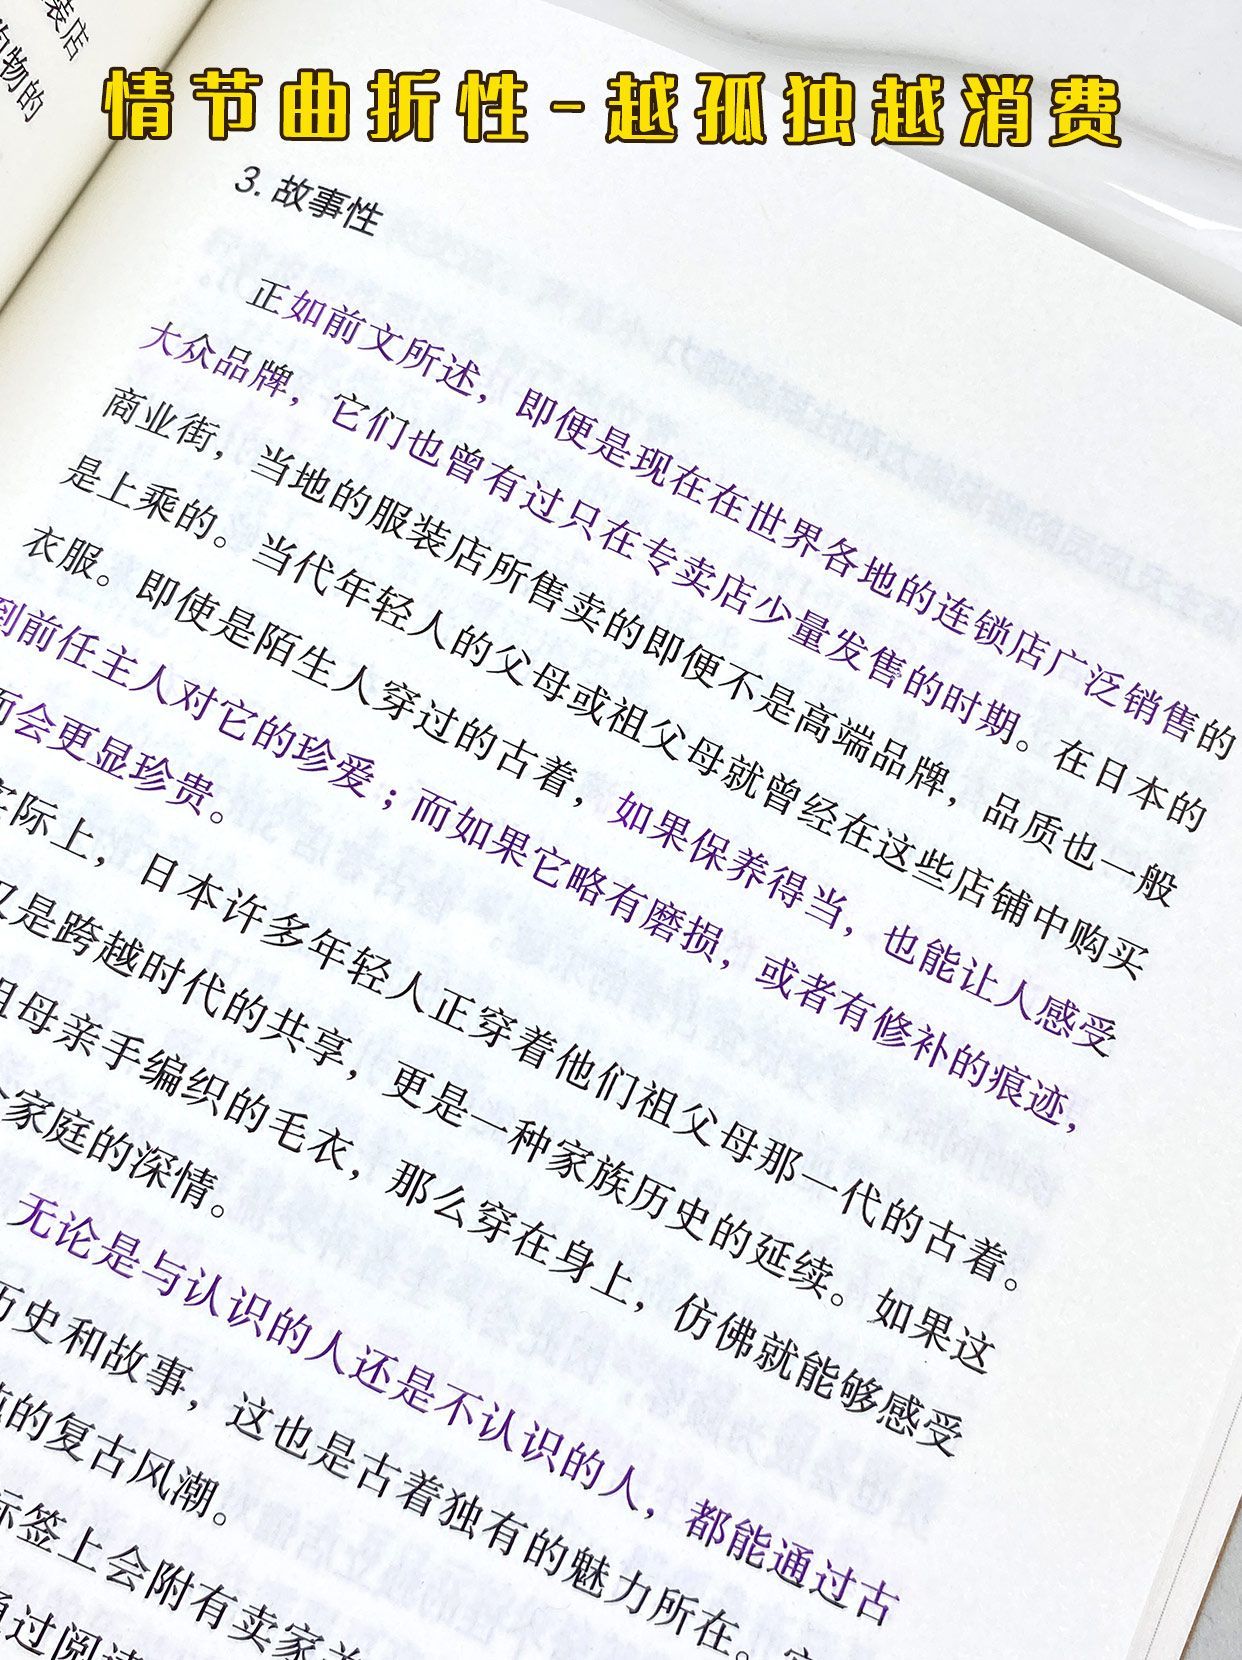 情节曲折性-越孤独越消费
装店
购物的
3. 故事性
正如前文所述，即便是现在在世界各地的连锁店广泛销售的
大众品牌，它们也曾有过只在专卖店少量发售的时期。在日本的
商业街，当地的服装店所售卖的即便不是高端品牌，品质也一般
是上乘的。当代年轻人的父母或祖父母就曾经在这些店铺中购买
衣服。即使是陌生人穿过的古着，如果保养得当，也能让人感受
到前任主人对它的珍爱；而如果它略有磨损，或者有修补的痕迹，
而会更显珍贵。
实际上，日本许多年轻人正穿着他们祖父母那一代的古着。
又是跨越时代的共享，更是一种家族历史的延续。如果这
祖母亲手编织的毛衣，那么穿在身上，仿佛就能够感受
个家庭的深情。
无论是与认识的人还是不认识的人，都能通过古
历史和故事，这也是古着独有的魅力所在。
的复古风潮。
标签上会附有卖家
通过阅读